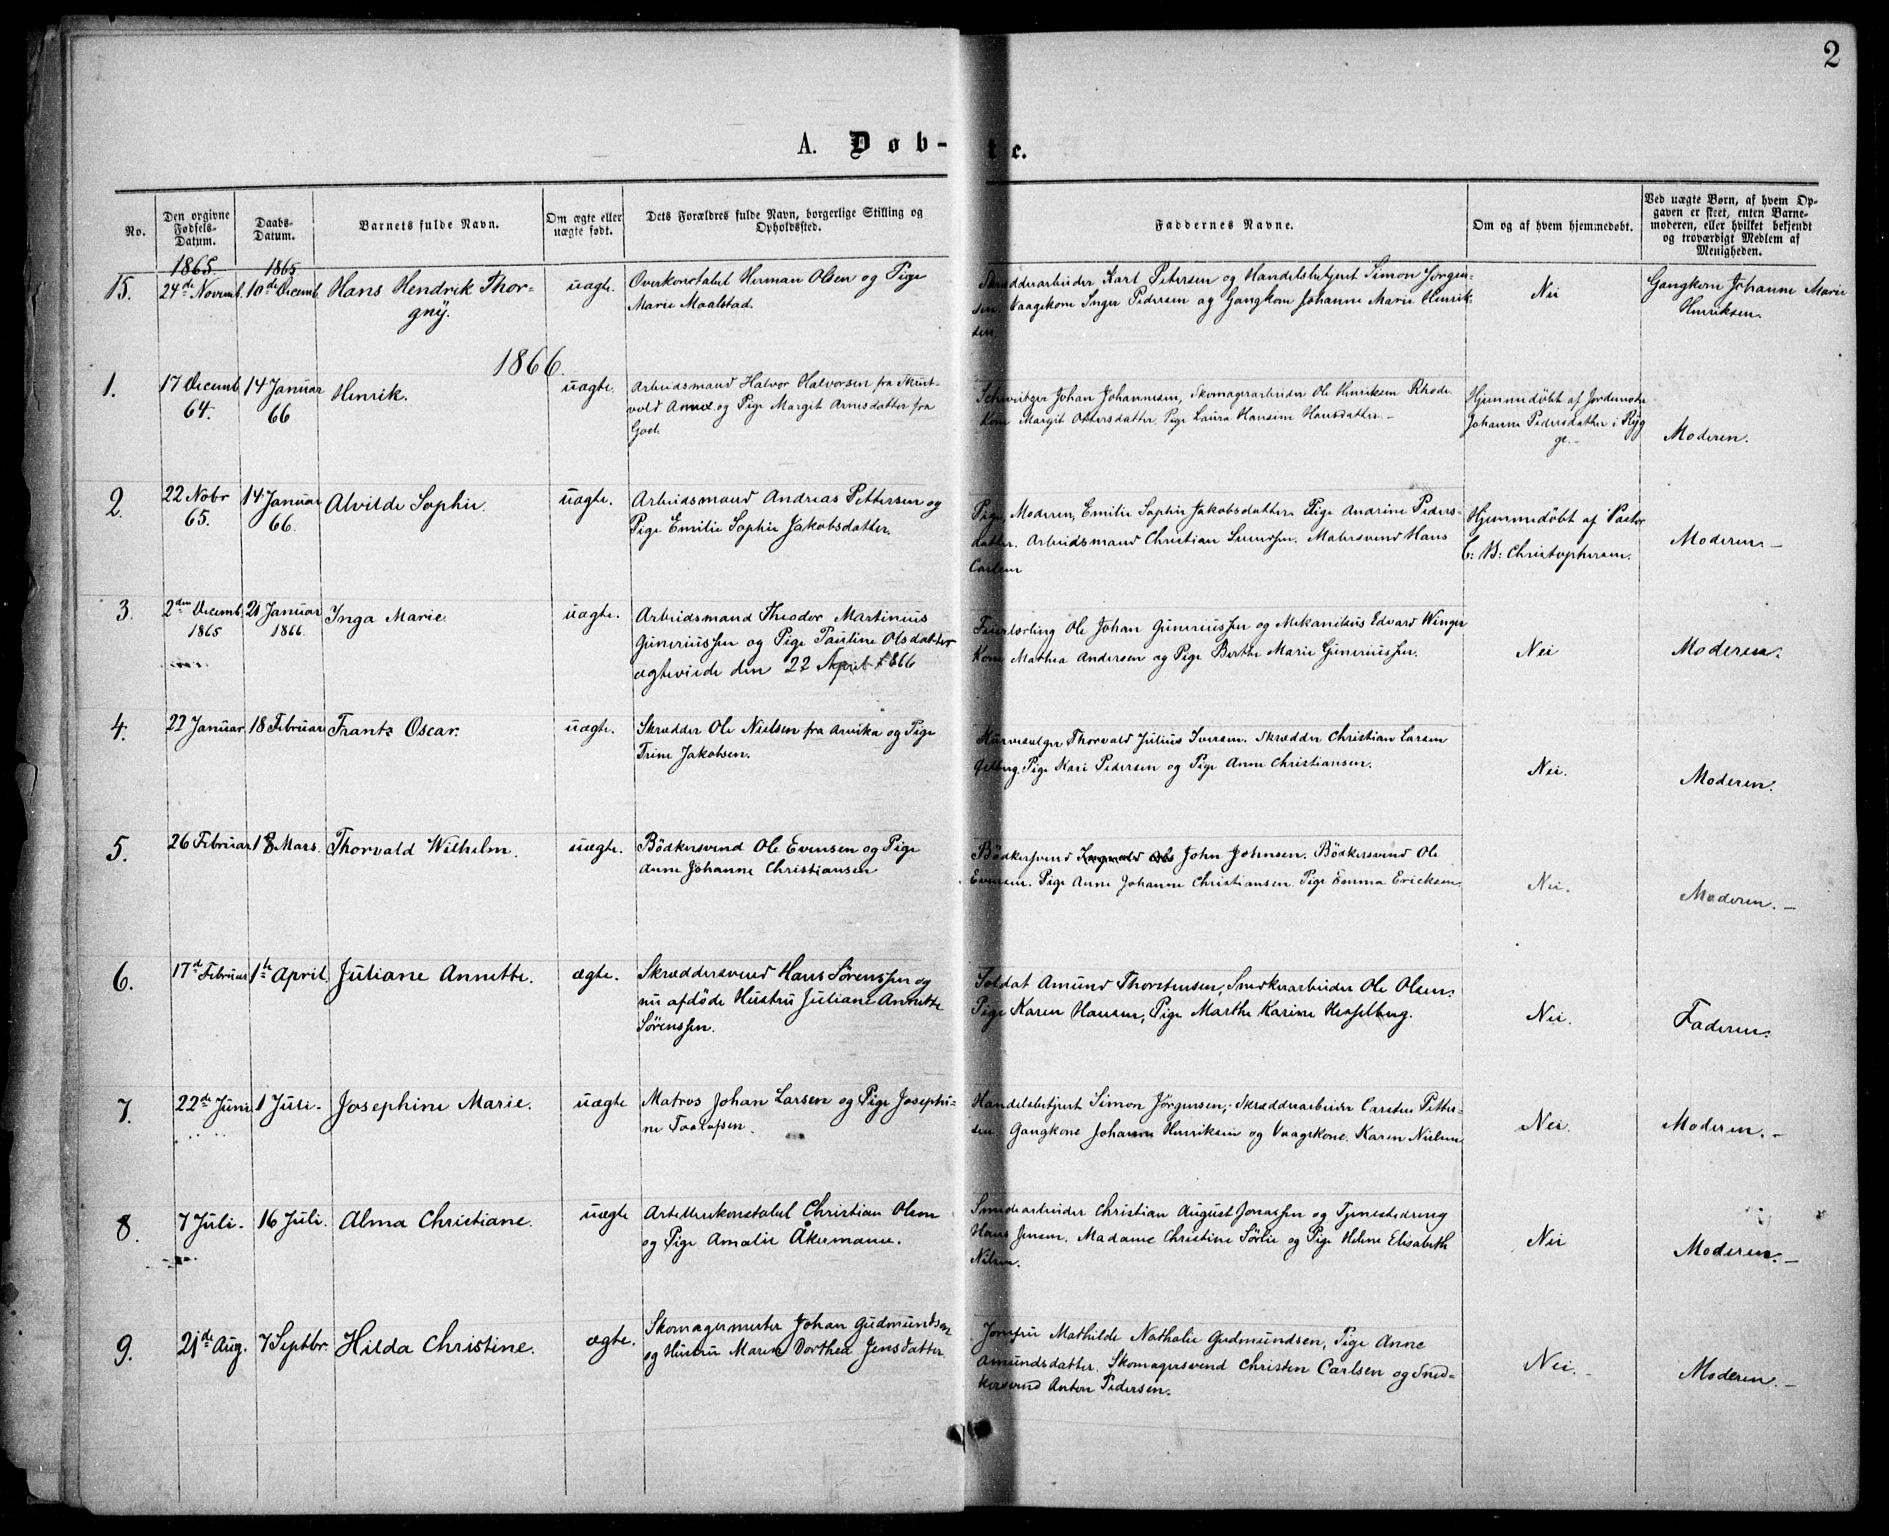 2
A. Døb- te.
No.
Den orgivne Fødsels-Datum.
Daabs-Datum.
Barnets fulde Navn.
Om ægte eller uægte født.
Dets Forældres fulde Navn, borgerlige Stilling og Opholdssted.
Faddernes Navne.
Om og af hvem hjemmedøbt.
Ved uægte Børn, af hvem Op-
gaven er skeet, enten Barne-
moderen, eller hvilket bekjendt
og troværdigt Medlem af
Menigheden.
1865. 1865
15. 24de Novemb. 10de Decemb. Hans Hendrik Thor-
gny.
uægte.
Overkonstabel Herman Olsen og Pige
Marie Maalstad.
Skrædderarbeider Karl Petersen og Handelsbetjent Simon Jørgen-
sen. Vaagekone Inger Pedersen og Gangkone Johanne Marie Henrik-
sen.
Nei
Gangkone Johanne Marie
Henriksen.
1866.
1. 17 Decemb. 64. 14 Januar 66 Henrik. uægte.
Arbeidsmand Halvor Halvorsen fra
og Pige Margit Arnesdatter fra
Goel.
Johan Johannesen, Skomagerarbeider Ole Henriksen Rhode
Kone Margit Ottersdatter, Pige Laura Hansine Hansdatter. -
Hjemmedøbt af Jordemoder
Johanne Pedersdatter i Ryg
ge. -
Moderen.
2. 22 Nobr 65. 14 Januar 66. Alvilde Sophie. uægte.
Arbeidsmand Andreas Pettersen og
Pige Emilie Sophie Jakobsdatter.
Pige, Moderen, Emilie Sophie Jakobsdatter. Pige Andrine Peders-
datter. Arbeidsmand Christian Svendsen. Malersvend Hans
Carlsen
Hjemmedøbt af Pastor
C: B: Christophersen.
Moderen. -
3. 2den Decemb. 1865 21 Januar 1866. Inga Marie. uægte.
Arbeidsmand Theodor Martinius
Guneriussen og Pige Pauline Olsdatter
ægteviede den 22 April 1866
Ole Johan Guneriussen og Mekanikus Edvard Winger
Kone Mathea Andersen og Pige Berthe Marie Guneriussen.
Nei
Moderen.
4. 22 Januar. 18 Februar Frantz Oscar. uægte.
Skrædder Ole Nielsen fra Arvika og Pige
Trine Jakobsen.
Thorvald Julius Iversen. Skrædder Christian Larsen
Pige Kari Pedersen og Pige Anne Christiansen.
Nei.
Moderen.
5. 26 Februar 18 Mars. Thorvald Wilhelm. uægte.
Bødkersvend Ole Evensen og Pige
Anne Johanne Christiansen
Bødkersvend John Johnsen. Bødkersvend Ole
Evensen. Pige Anne Johanne Christiansen Pige Emma Ericksen.
Nei.
Moderen. -
6. 17d Februar 1te April. Juliane Annette. ægte.
Skræddersvend Hans Sørenssen og
nu afdøde Hustru Juliane Annette
Sørenssen.
Soldat Amund Thorstensen, Snedkerarbeider Ole Olsen.
Pige Karen Hansen, Pige Marthe Karine Hesselberg.
Nei.
Faderen.
7. 22de Juni 1 Juli. Josephine Marie. uægte
Matros Johan Larsen og Pige Josephi-
ne
Handelsbetjent Simon Jørgensen, Skrædderarbeider Carsten Petter-
sen Gangkone Johanne Henriksen og Vaagekone. Karen Nielsen
Nei.
Moderen. -
8. 7 Juli. 16 Juli. Alma Christiane. uægte
Artillerikonstabel Christian Olsen
og Pige Amalie Åkermann.
Smedearbeider Christian August Jonassen og Tjenestedreng
Hans Jensen. Madame Christine Sørlie og Pige Helene Elisabeth
Nilsen.
Nei
Moderen. -
9. 21de Aug. 7 Septbr. Hilda Christine. ægte.
Skomagermester Johan Gudmundsen
og Hustru Maren Dorthea Jensdatter.
Jomfru Mathilde Nathalie Gudmundsen, Pige Anne
Amundsdatter. Skomagersvend Christen Carlsen og Sned-
kersvend Anton Pedersen.
Nei.
Moderen. -